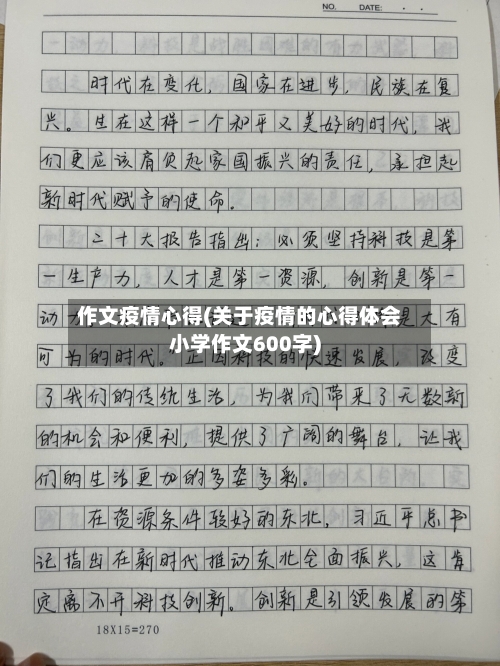 NO. DATE: · ·
时代在变化，国家在进步，民族在复
兴。生在这样一个和平又美好的时代，我
们更应该肩负起家国振兴的责任，承担起
新时代赋予的使命。
二十大报告指出：必须坚持科技是第
一生产力，人才是第一资源，创新是第一
动力
作文疫情心得(关于疫情的心得体会
是大有
小学作文600字)
可为的时代。正因科技的快速发展，改变
了我们的传统生活，为我们带来了无数新
的机会和便利，提供了广阔的舞台，让我
们的生活更加的多姿多彩。
在资源条件较好的东北，习近平总书
记指出在新时代推动东北全面振兴，这肯
定离不开科技创新。创新是引领发展的第
18X15=270